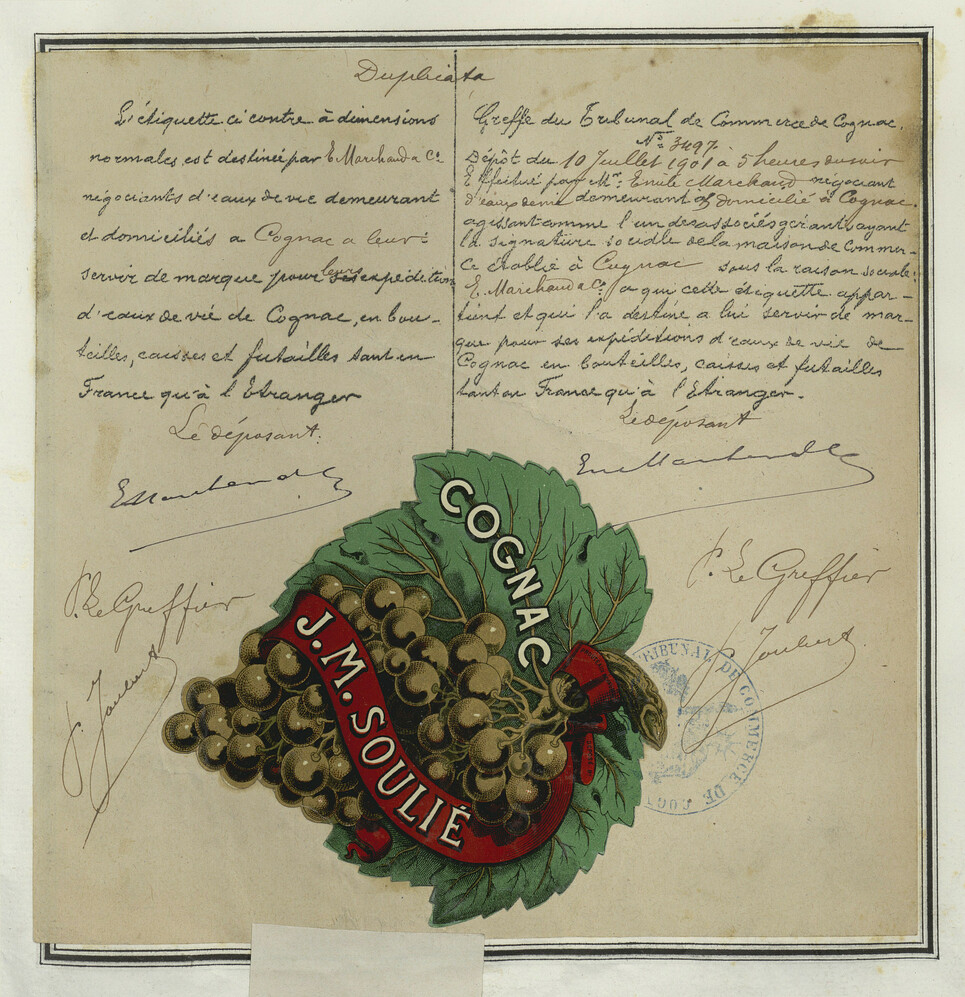 Duplicata
L'étiquette ci contre à dimensions
normales est destinée par E. Marchand & Cie
négociants d'eaux de vie demeurant
et domiciliés a Cognac a leur
servir de marque pour leurs expéditions
d'eaux de vie de Cognac, en bou-
teilles, caisses et futailles tant en
France qu'à l'Etranger
Le déposant:
E Marchand & Cie
P. Le Greffier
P. Joubert
Greffe du Tribunal de Commerce de Cognac.
No. 3497
Dépôt du 10 Juillet 1901 à 5 heures du soir
Effectué par Mr. Emile Marchand négociant
d'eaux de vie demeurant et domicilié à Cognac.
agissant comme l'un des associés gérants ayant
la signature sociale de la maison de Commer-
ce établie à Cognac sous la raison sociale:
E. Marchand & Co. a qui cette étiquette appar-
tient et qui l'a destiné a lui servir de mar-
que pour ses expéditions d'eaux de vie de
Cognac en bouteilles, caisses et futailles
tant en France qu'à l'Etranger.
Le déposant
Em Marchand & Cie
P. Le Greffier
P. Joubert
COGNAC
J. M. SOULIÉ
TRIBUNAL DE COMMERCE DE